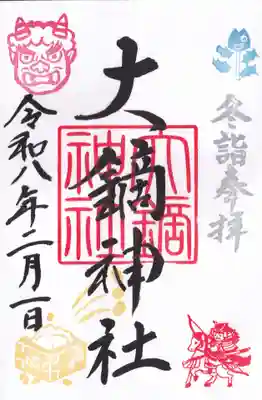 冬詣奉拝
大鏑神社
大鏑
神社
令和八年二月一日